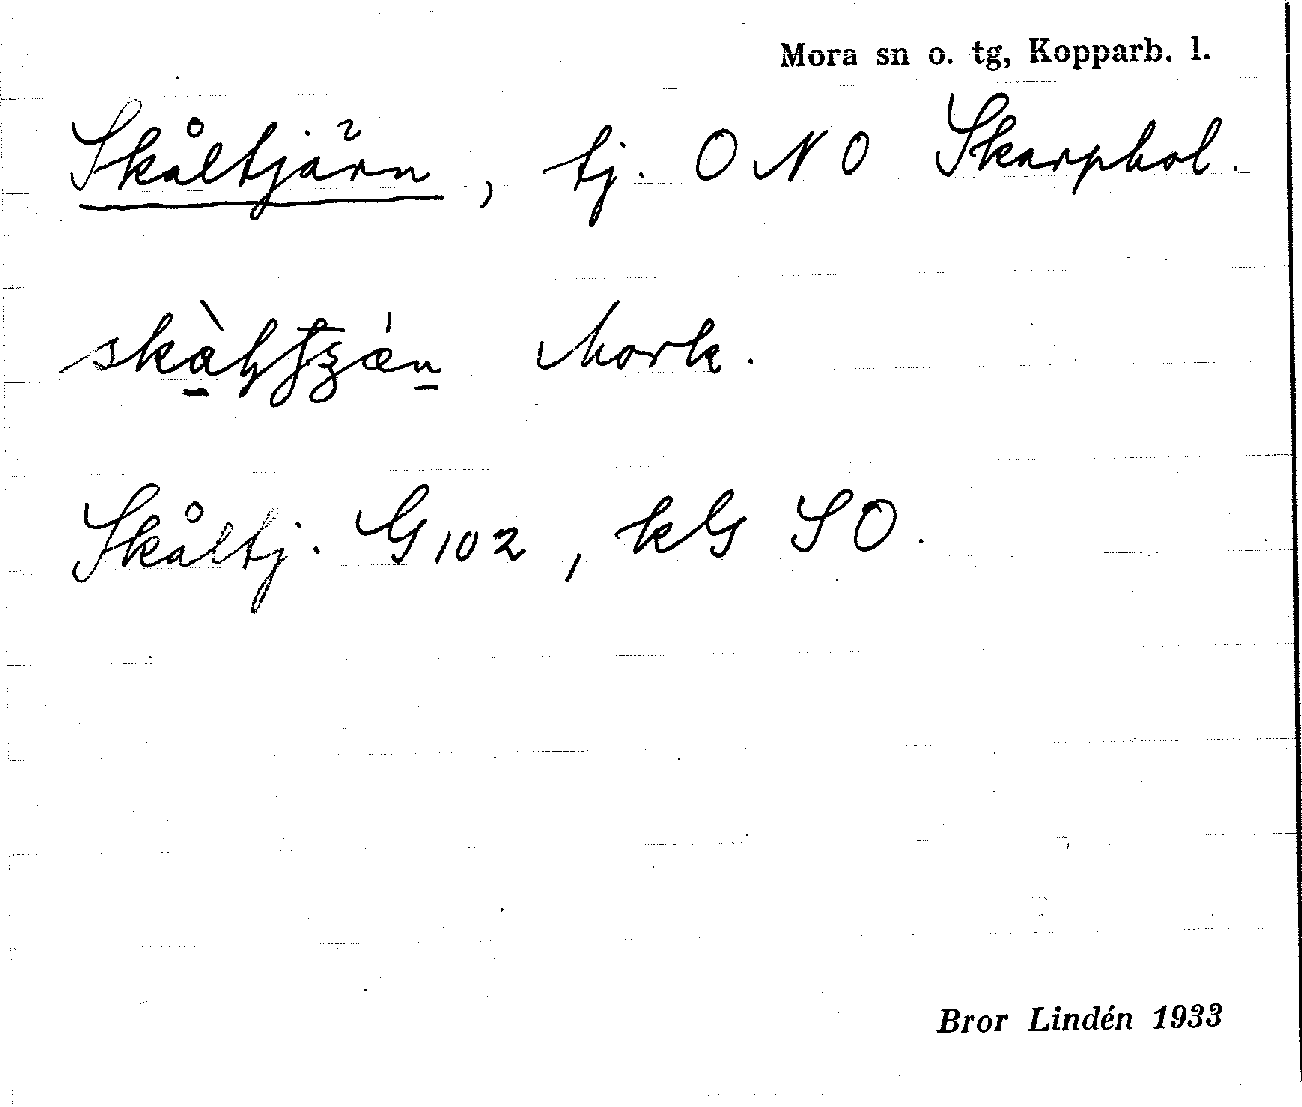 Mora sn o. tg, Kopparb. l.
Skåltjärn, tj. ONO Skarphol.
Mork.
Skåltj. G102, kG SO.
Bror Lindén 1933